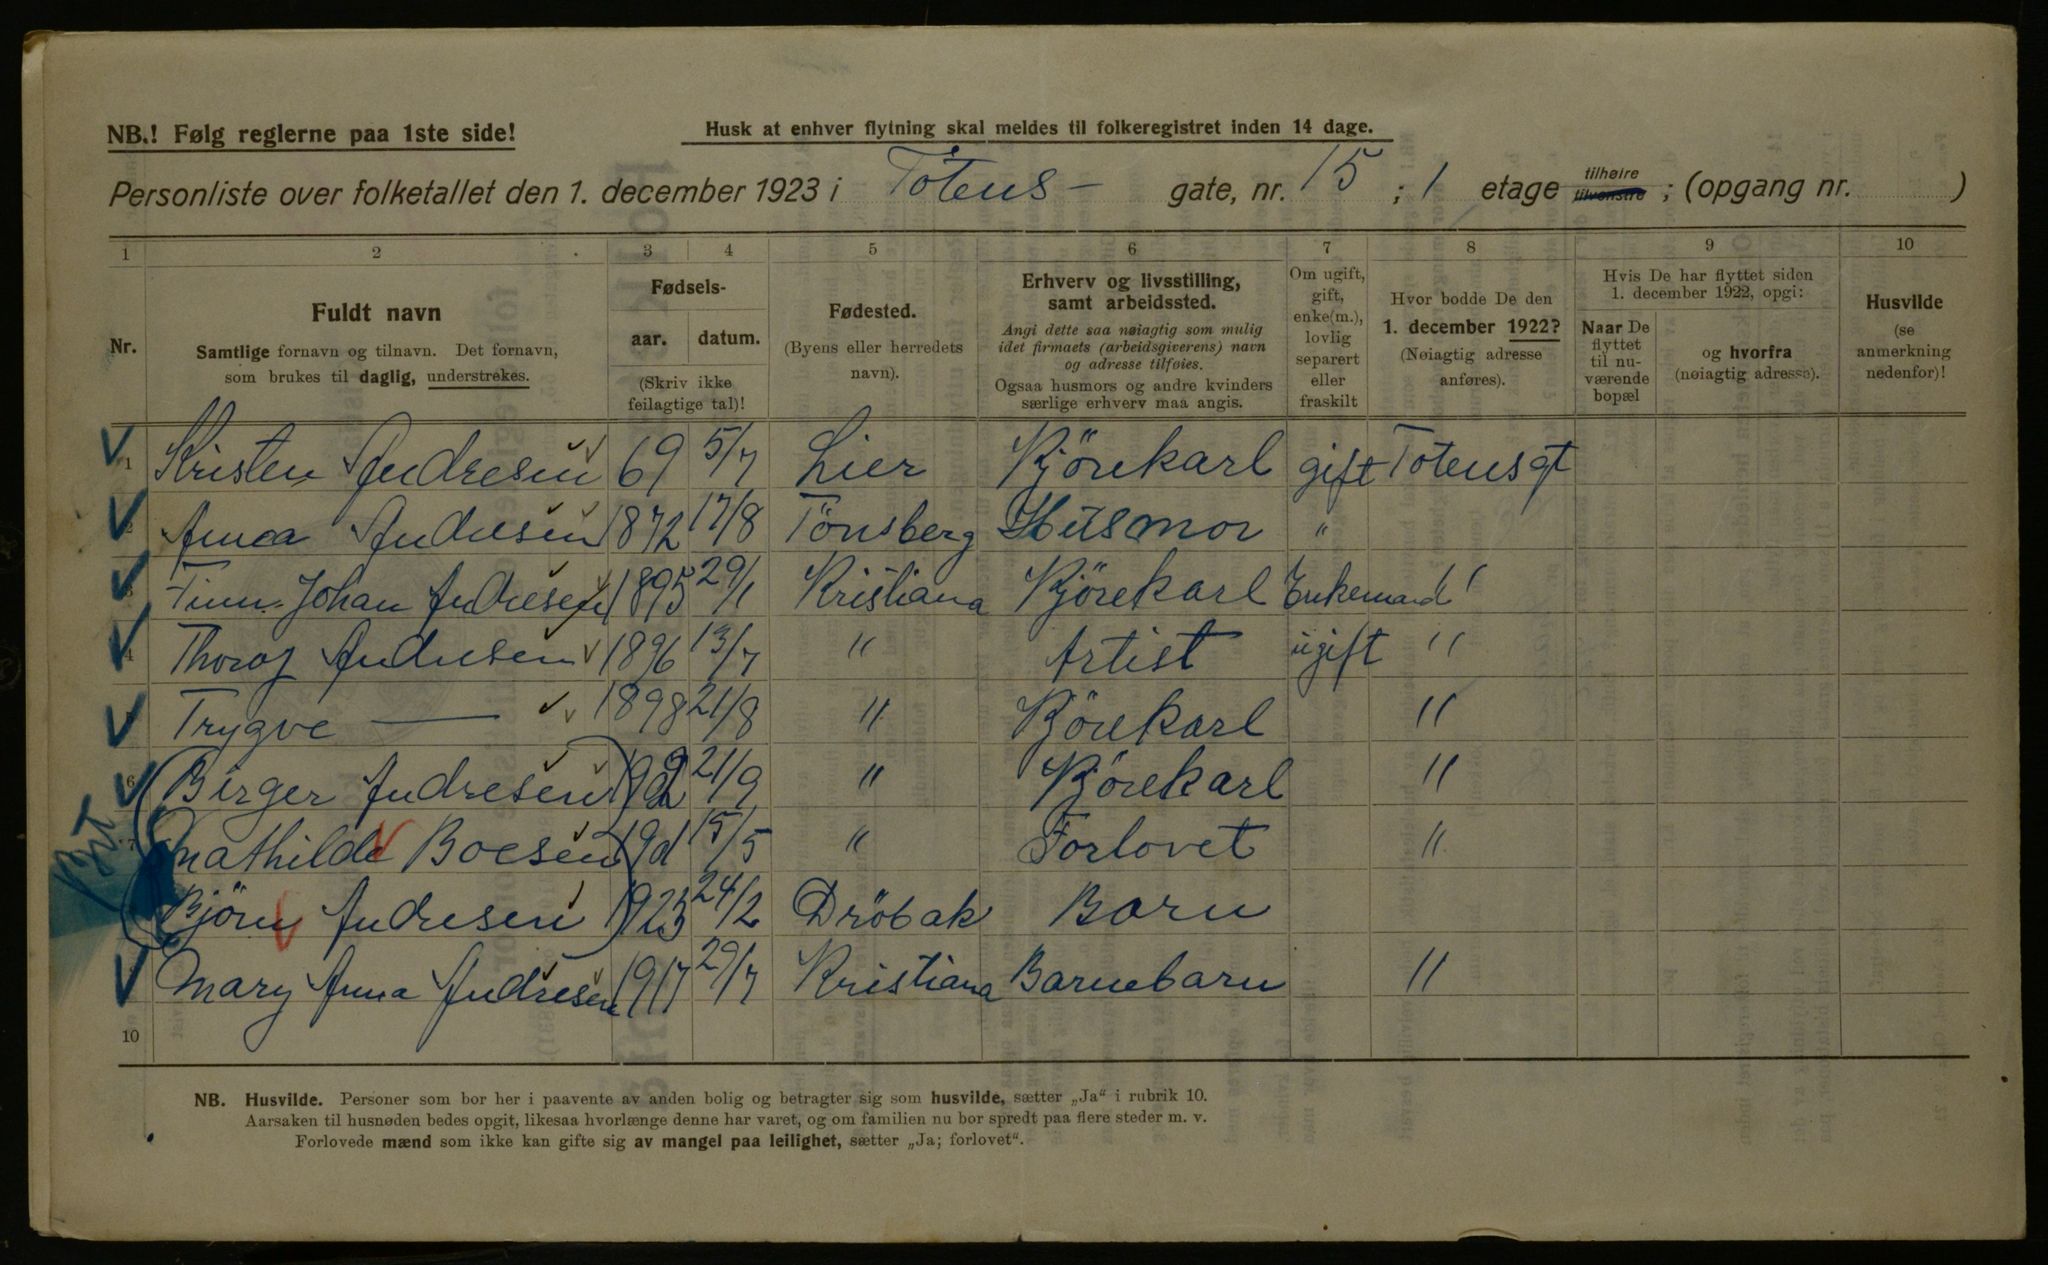 NB.! Følg reglerne paa 1ste side!
Husk at enhver flytning skal meldes til folkeregistret inden 14 dage.
Personliste over folketallet den 1. december 1923 i Totens - gate, nr. 15 ; 1 etage tilhøire tilvenstre ; (opgang nr. )
1 2 3 4 5 6 7 8 9 10
Nr.
Fuldt navn
Samtlige fornavn og tilnavn. Det fornavn,
som brukes til daglig, understrekes.
Fødsels-
aar. datum.
(Skriv ikke
feilagtige tal)!
Fødested.
(Byens eller herredets
navn).
Erhverv og livsstilling,
samt arbeidssted.
Angi dette saa nøiagtig som mulig
idet firmaets (arbeidsgiverens) navn
og adresse tilføies.
Ogsaa husmors og andre kvinders
særlige erhverv maa angis.
Om ugift,
gift,
enke(m.),
lovlig
separert
eller
fraskilt
Hvor bodde De den
1. december 1922?
(Nøiagtig adresse
anføres).
Hvis De har flyttet siden
1. december 1922, opgi:
Naar De
flyttet
til nu-
værende
bopæl
og hvorfra
(nøiagtig adresse).
Husvilde
(se
anmerkning
nedenfor)!
1 Kristen Andresen 69 5/7 Lier Kjörekarl gift Totensgt
2 Anna Andresen 1872 17/8 Tönsberg Husmor "
3 Finn Johan Andresen 1895 29/1 Kristiana Kjörekarl Enkemand "
4 Thoralf Andresen 1896 13/7 " Artist ugift "
5 Trygve — 1898 21/8 " Kjörekarl "
6 Birger Andresen 1902 21/9 " Kjörekarl "
7 Mathilde Boesen 15/5 " Forlovet "
Björn Andresen 1923 24/2 Dröbak Barn
Mary Anna Andresen 1917 29/7 Kristiana Barnebarn "
10
NB. Husvilde. Personer som bor her i paavente av anden bolig og betragter sig som husvilde, sætter „Ja“ i rubrik 10.
Aarsaken til husnøden bedes opgit, likesaa hvorlænge denne har varet, og om familien nu bor spredt paa flere steder m. v.
Forlovede mænd som ikke kan gifte sig av mangel paa leilighet, sætter „Ja; forlovet“.